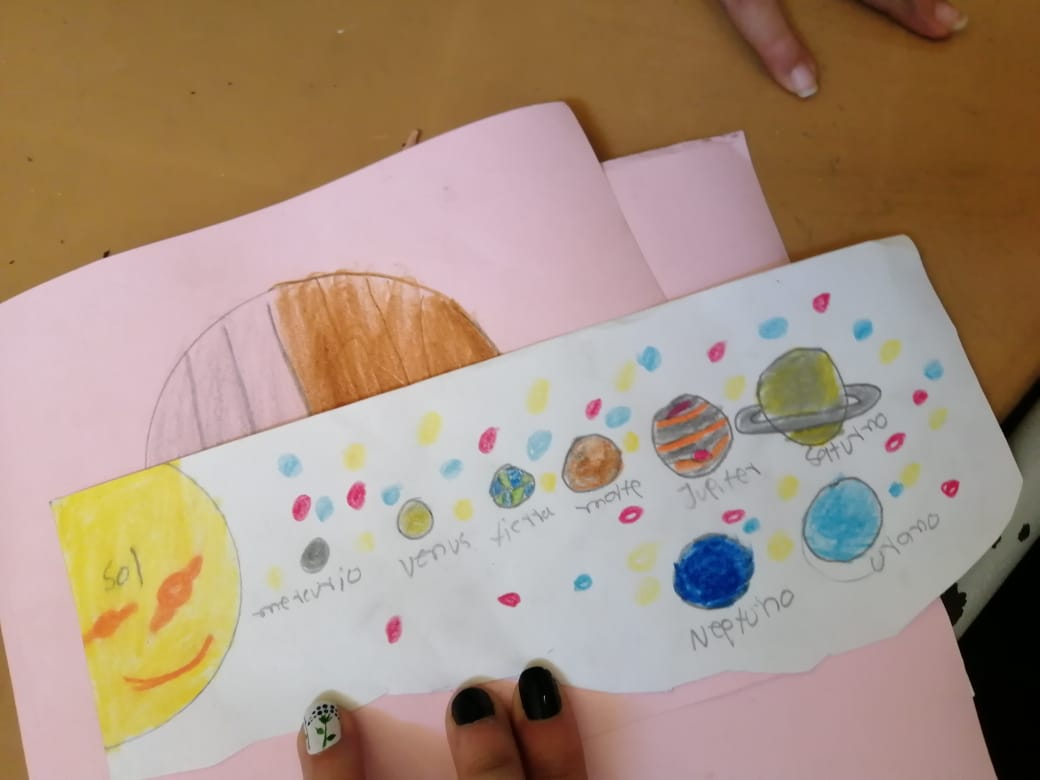 sol
mercurio
venus
tierra
marte
Jupiter
saturno
urano
Neptuno